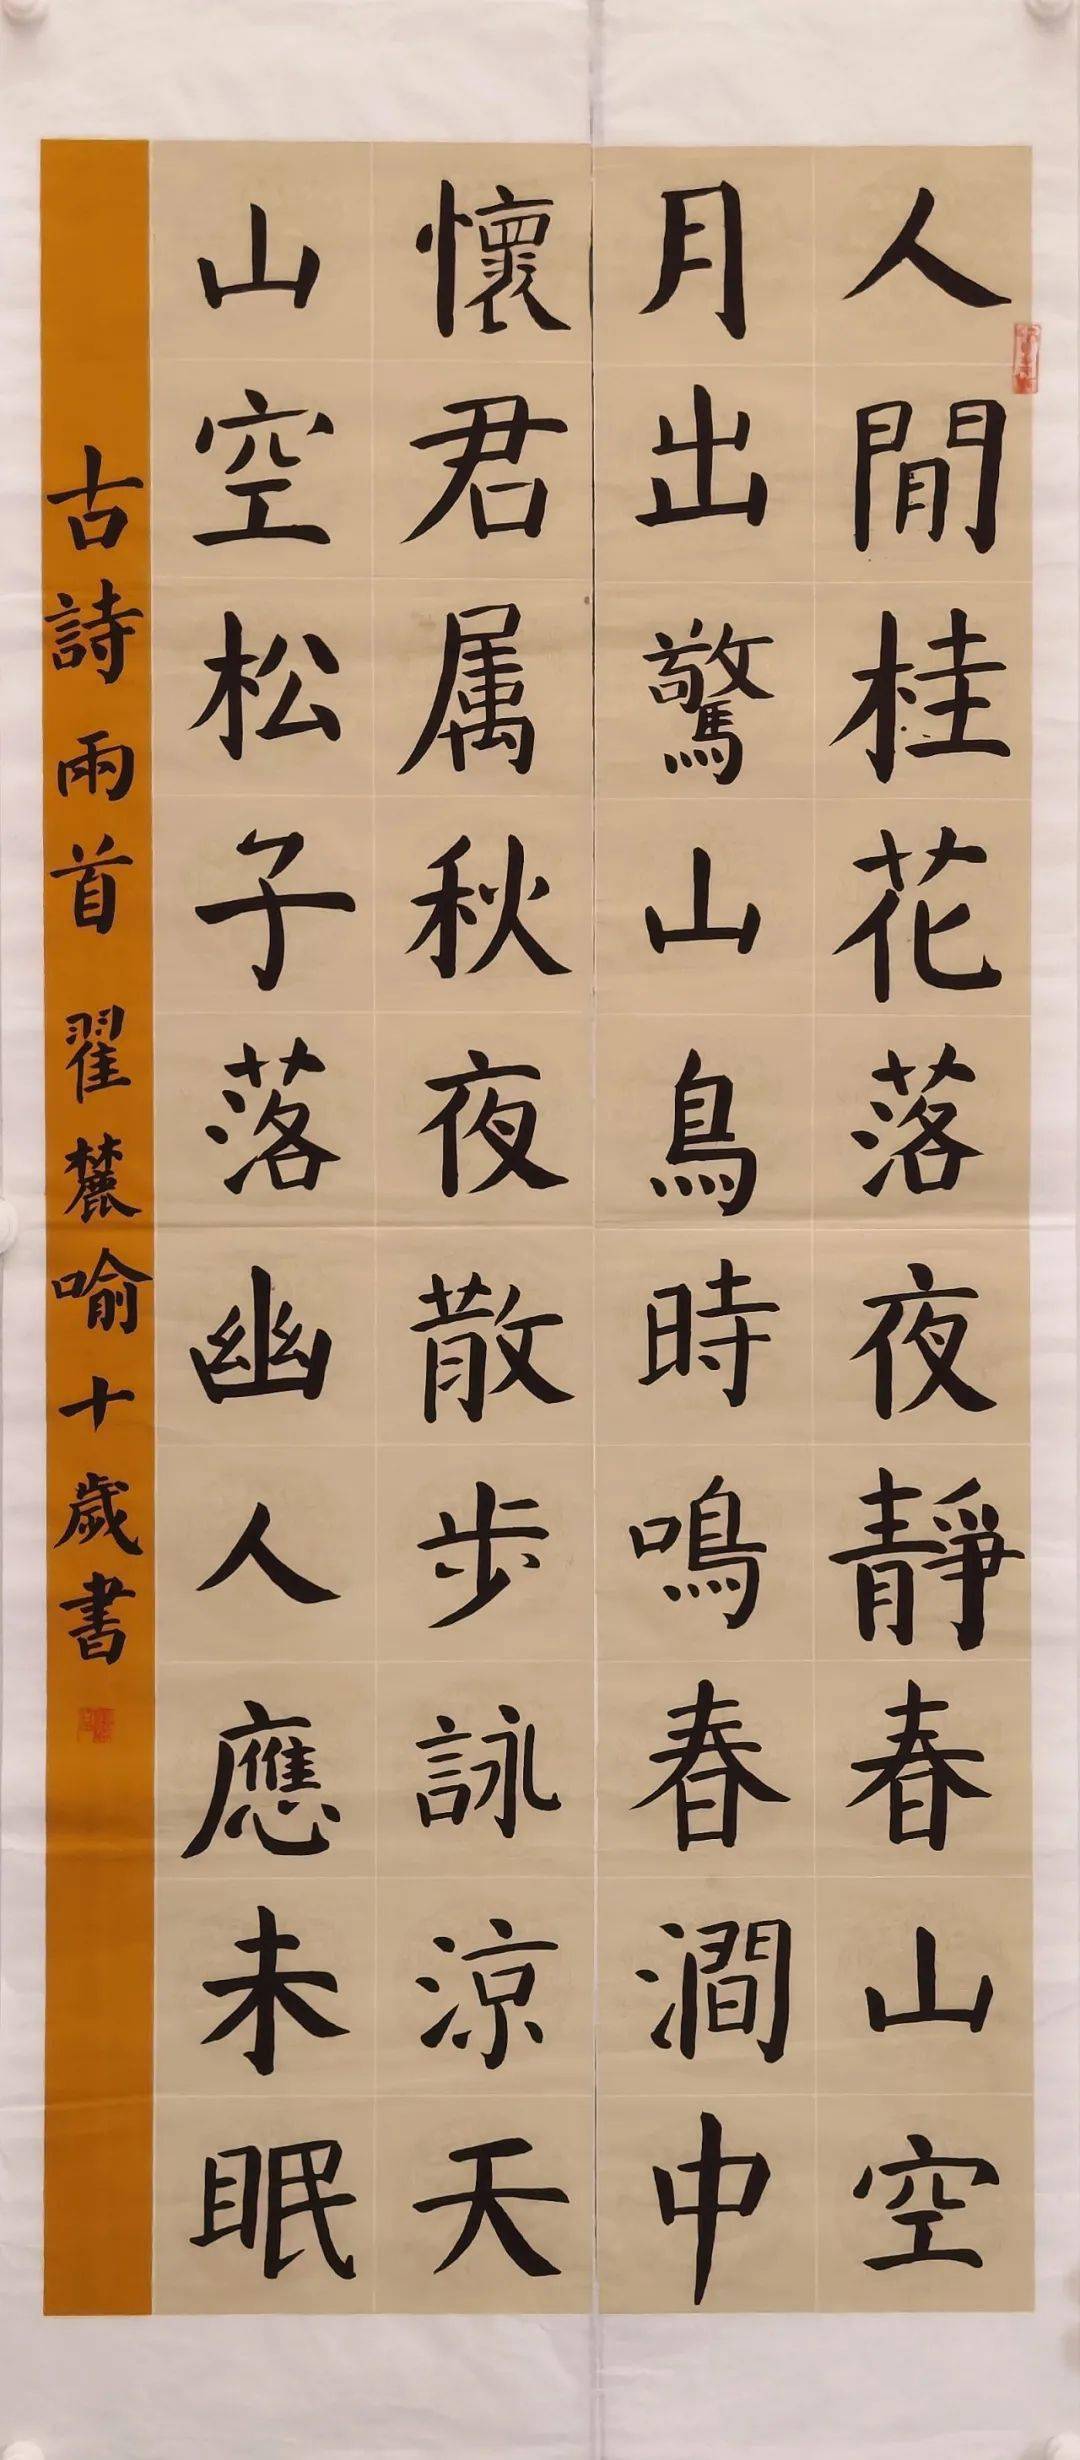 人閒桂花落夜靜春山空
月出驚山鳥時鳴春澗中
懷君属秋夜散步詠涼天
山空松子落幽人應未眠
古詩兩首 翟麓喻十歲書